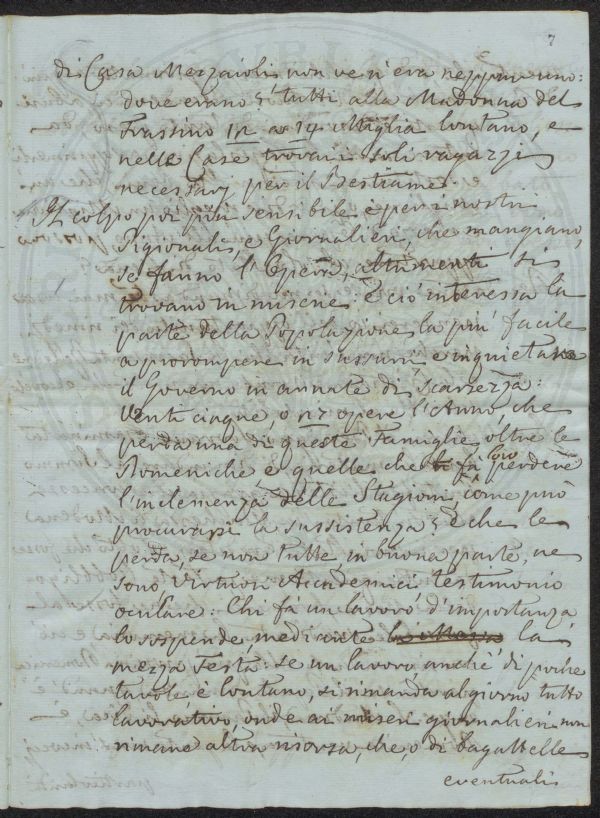 7
di Casa Mezzaioli non ve n'era neppur uno:
dove erano? tutti alla Madonna del
Frassino 12 o 14 Miglia lontano, e
nelle Case trovai soli ragazzi
necessarj per il Bestiame.
Il colpo poi più sensibile è per i nostri
Pigionali, e Giornalieri, che mangiano,
se fanno l'Opera, altrimenti si
trovano in miserie: e ciò interessa la
parte della Popolazione la più facile
a prorompere in sussurri, e inquietare
il Governo in annate di scarsezza:
Venti cinque, o opere l'Anno, che
perda una di queste Famiglie, oltre le
Domeniche, e quelle che fà loro perdere
l'inclemenza delle Stagioni, come può
procurarsi la sussistenza? è che le
perda, se non tutte, in buona parte, ne
sono, Virtuosi Accademici testimonio
oculare: Chi fà un lavoro d'importanza
lo sospende, mediante la
mezza Festa: se un lavoro anche di poche
tavole è lontano, si rimanda al giorno tutto
lavorativo, onde ai miseri giornalieri non
rimane altra risorsa, che, o di bagattelle
eventuali